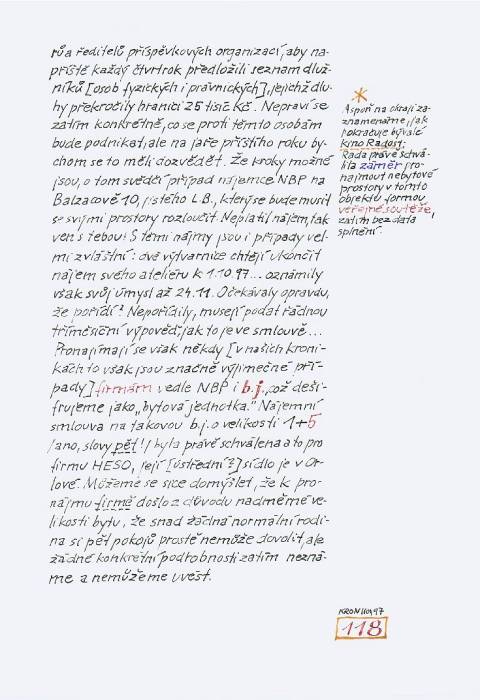 rů a ředitelů příspěvkových organizací, aby na-
příště každý čtvrtrok předložili seznam dluž-
níků [osob fyzických i právnických], jejichž dlu-
hy překročily hranici 25 tisíc Kč. Nepraví se
zatím konkrétně, co se proti těmto osobám
bude podnikat, ale na jaře příštího roku by-
chom se to měli dozvědět. Že kroky možné
jsou, o tom svědčí případ nájemce NBP na
Balzacově 10, jistého L.B., který se bude muset
se svými prostory rozloučit. Neplatil nájem, tak
ven s tebou! S těmi nájmy jsou i případy vel-
mi zvláštní: dvě výtvarnice chtějí ukončit
nájem svého atelieru k 1.10.97... oznámily
však svůj úmysl až 24.11. Očekávaly opravdu,
že pořídí? Nepořídily, musejí podat řádnou
tříměsíční výpověď, jak to je ve smlouvě...
Pronajímají se však někdy [v našich kroni-
kách to však jsou značně výjimečné pří-
pady] firmám vedle NBP i b.j., což dešif-
frujeme jako „bytová jednotka." Nájemní
smlouva na takovou b.j. o velikosti 1+5
/ano, slovy pět!/ byla právě schválena a to pro
firmu HESO, její [ústřední?] sídlo je v Or-
lové. Můžeme se sice domýšlet, že k pro-
nájmu firmě došlo z důvodu nadměrné ve-
likosti bytu, že snad žádná normální rodi-
na si pět pokojů prostě nemůže dovolit, ale
žádné konkrétní podrobnosti zatím nezná-
me a nemůžeme uvést.
*
Aspoň na okraji za-
znamenáme, jak
pokračuje bývalé
kino Radost:
Rada právě schvá-
lila záměr pro-
najmout nebytové
prostory v tomto
objektu formou
veřejné soutěže,
zatím bez data
splnění.
KRONIKA 97
118